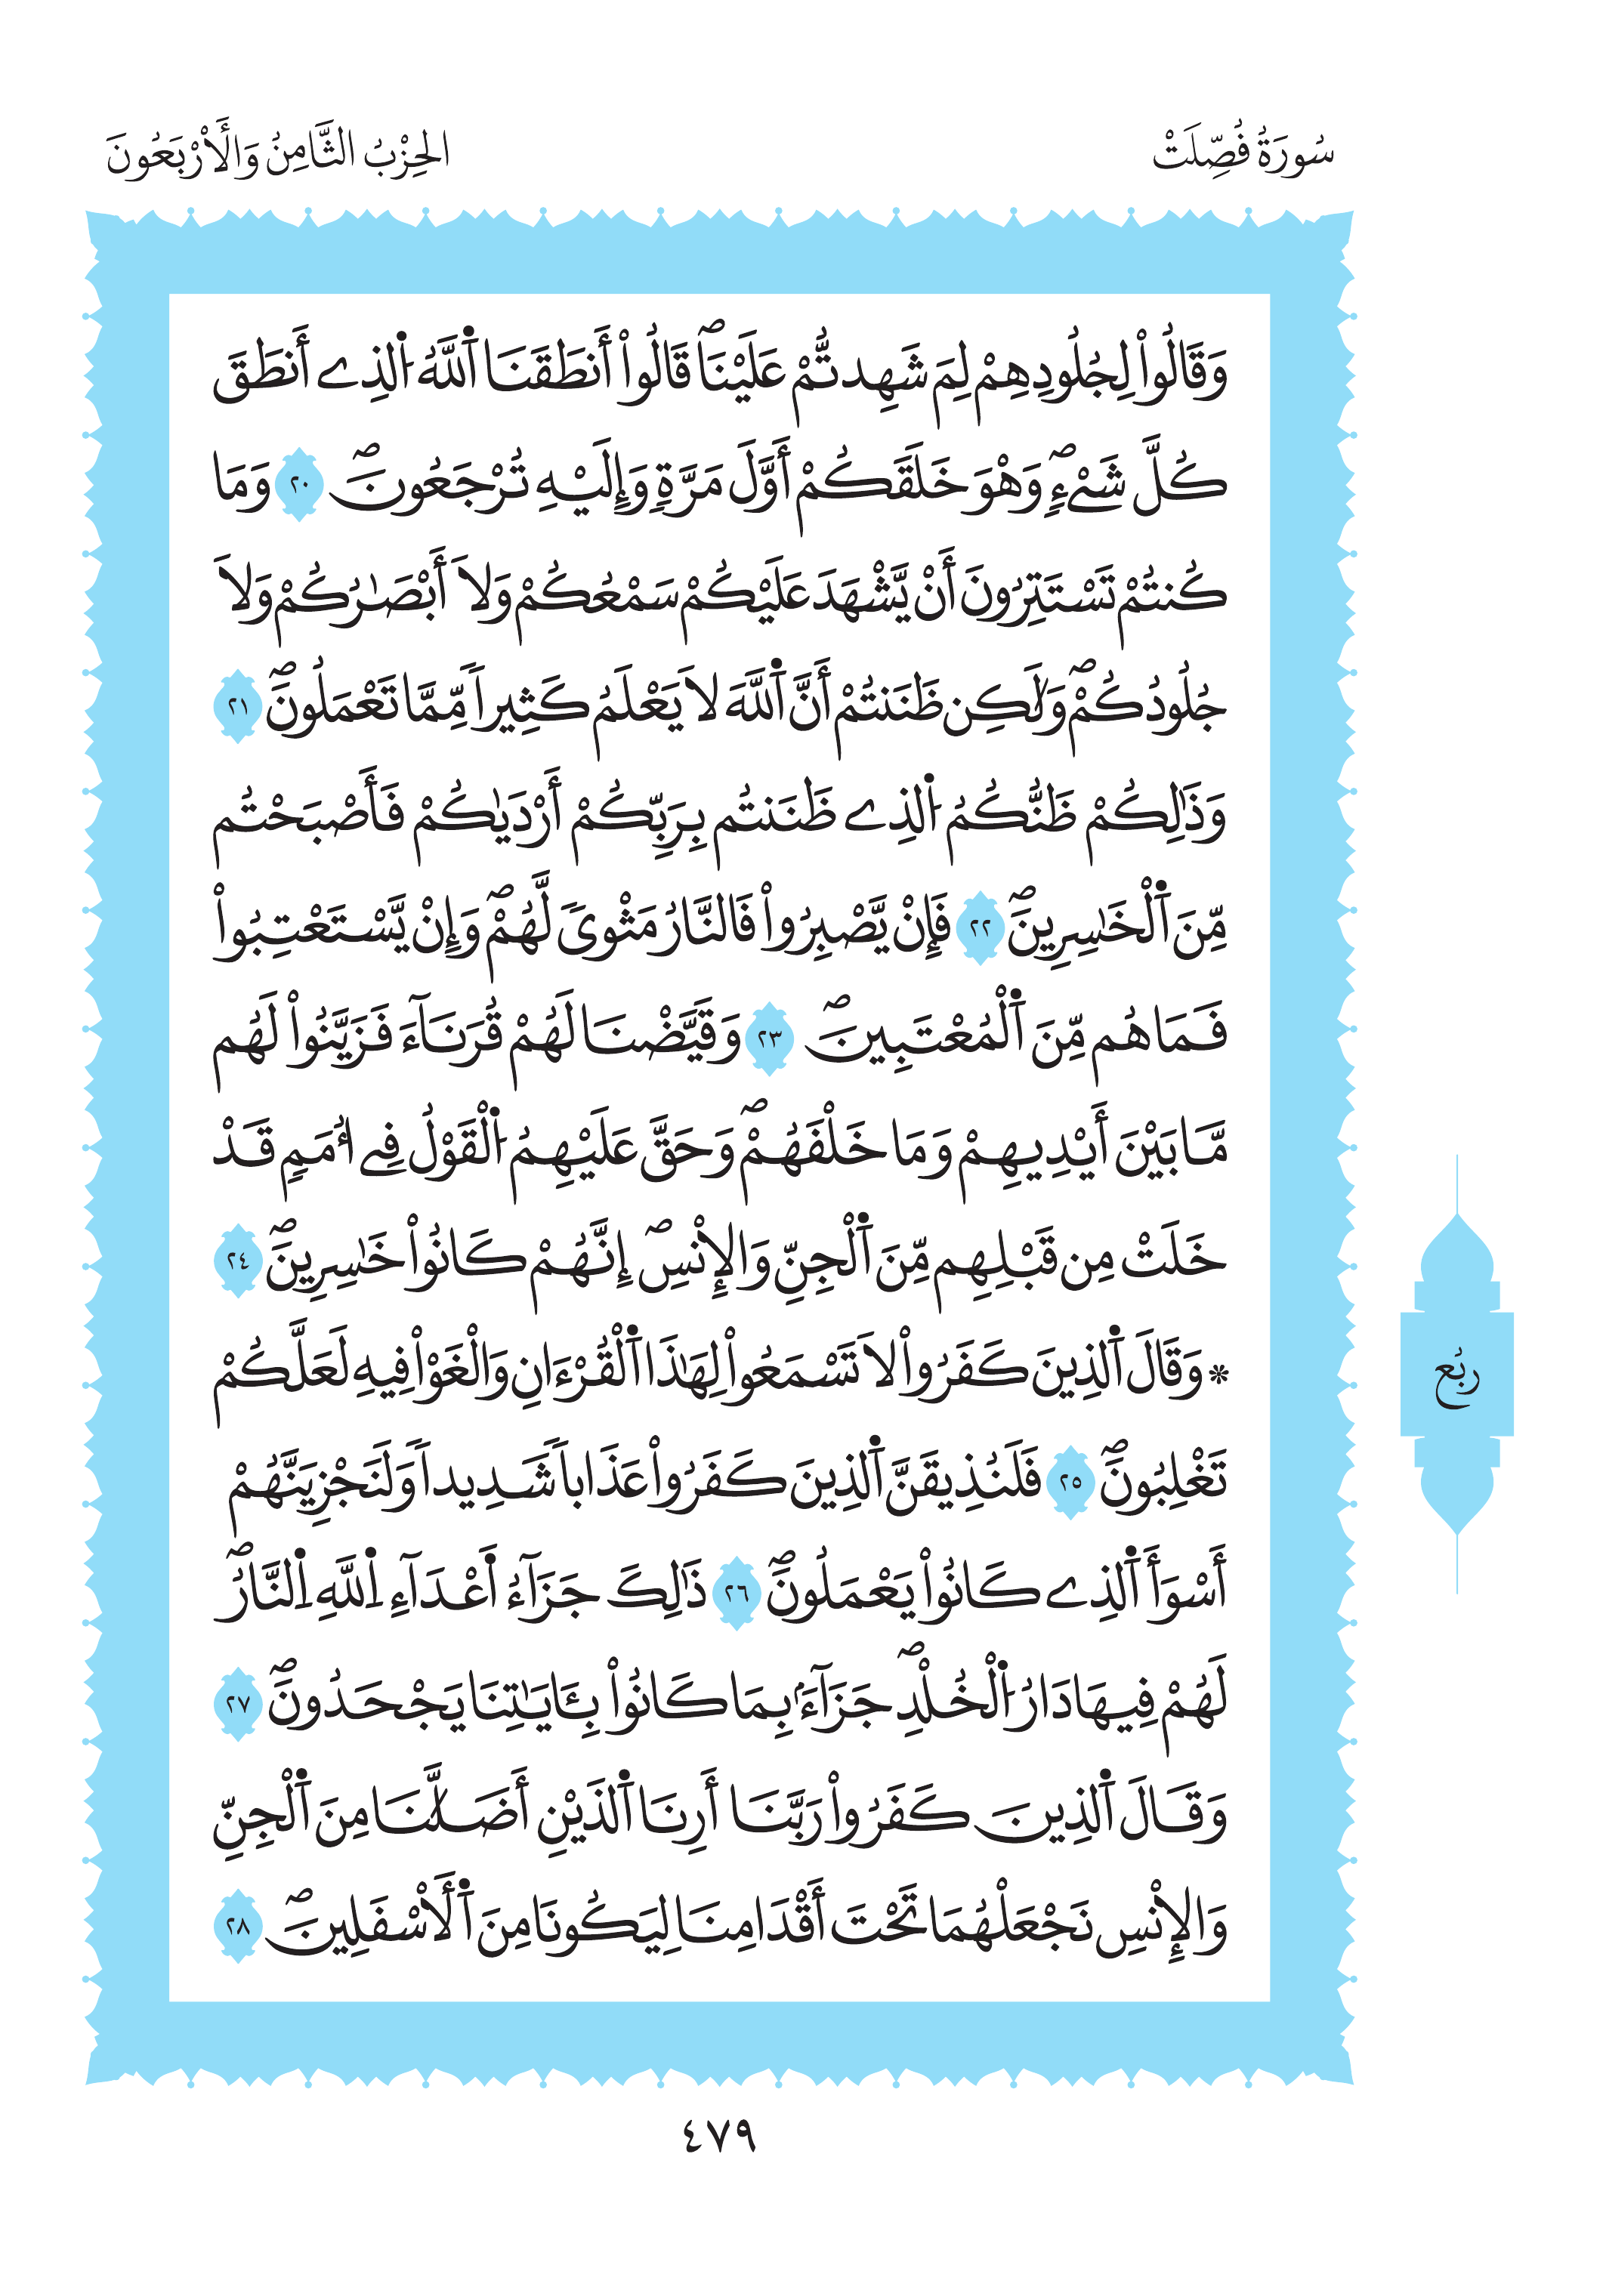 سُورَةُ فُصِّلَتْ
الحِزْبُ الثَّامِنُ وَالأَرْبَعُونَ
وَقَالُواْ لِجُلُودِهِمْ لِمَ شَهِدتُّمْ عَلَيْنَاۖ قَالُواْ أَنطَقَنَا اَ۬للَّهُ اُ۬لذِےٓ أَنطَقَ
كُلَّ شَےْءٖۖ وَهْوَ خَلَقَكُمْ أَوَّلَ مَرَّةٖ وَإِلَيْهِ تُرْجَعُونَۖ ٢٠ وَمَا
كُنتُمْ تَسْتَتِرُونَ أَنْ يَّشْهَدَ عَلَيْكُمْ سَمْعُكُمْ وَلَآ أَبْصَٰرُكُمْ وَلَا
جُلُودُكُمْۖ وَلَٰكِن ظَنَنتُمْ أَنَّ اَ۬للَّهَ لَا يَعْلَمُ كَثِيراٗ مِّمَّا تَعْمَلُونَۖ ٢١
وَذَٰلِكُمْ ظَنُّكُمُ اُ۬لذِے ظَنَنتُم بِرَبِّكُمْ أَرْدَيٰكُمْ فَأَصْبَحْتُم
مِّنَ اَ۬لْخَٰسِرِينَۖ ٢٢ فَإِنْ يَّصْبِرُواْ فَالنَّارُ مَثْويٗ لَّهُمْۖ وَإِنْ يَّسْتَعْتِبُواْ
فَمَا هُم مِّنَ اَ۬لْمُعْتَبِينَۖ ٢٣ وَقَيَّضْنَا لَهُمْ قُرَنَآءَ فَزَيَّنُواْ لَهُم
مَّا بَيْنَ أَيْدِيهِمْ وَمَا خَلْفَهُمْۖ وَحَقَّ عَلَيْهِمُ اُ۬لْقَوْلُ فِےٓ أُمَمٖ قَدْ
خَلَتْ مِن قَبْلِهِم مِّنَ اَ۬لْجِنِّ وَالْإِنْسِۖ إِنَّهُمْ كَانُواْ خَٰسِرِينَۖ ٢٤
* وَقَالَ اَ۬لذِينَ كَفَرُواْ لَا تَسْمَعُواْ لِهَٰذَا اَ۬لْقُرْءَانِ وَالْغَوْاْ فِيهِ لَعَلَّكُمْ
تَغْلِبُونَۖ ٢٥ فَلَنُذِيقَنَّ اَ۬لذِينَ كَفَرُواْ عَذَاباٗ شَدِيداٗ وَلَنَجْزِيَنَّهُمْ
أَسْوَأَ اَ۬لذِے كَانُواْ يَعْمَلُونَۖ ٢٦ ذَٰلِكَ جَزَآءُ اَ۬عْدَآءِ اِ۬للَّهِ اِ۬لنَّارُۖ
لَهُمْ فِيهَا دَارُ اُ۬لْخُلْدِۖ جَزَآءَۢ بِمَا كَانُواْ بِـَٔايَٰتِنَا يَجْحَدُونَۖ ٢٧
وَقَالَ اَ۬لذِينَ كَفَرُواْ رَبَّنَا أَرِنَا اَ۬لذَيْنِ أَضَلَّٰنَا مِنَ اَ۬لْجِنِّ
وَالْإِنْسِ نَجْعَلْهُمَا تَحْتَ أَقْدَامِنَا لِيَكُونَا مِنَ اَ۬لْأَسْفَلِينَۖ ٢٨
ربع
٤٧٩